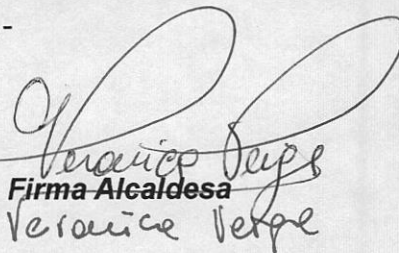 -
Veronica Verge
Firma Alcaldesa
Veronica Verge